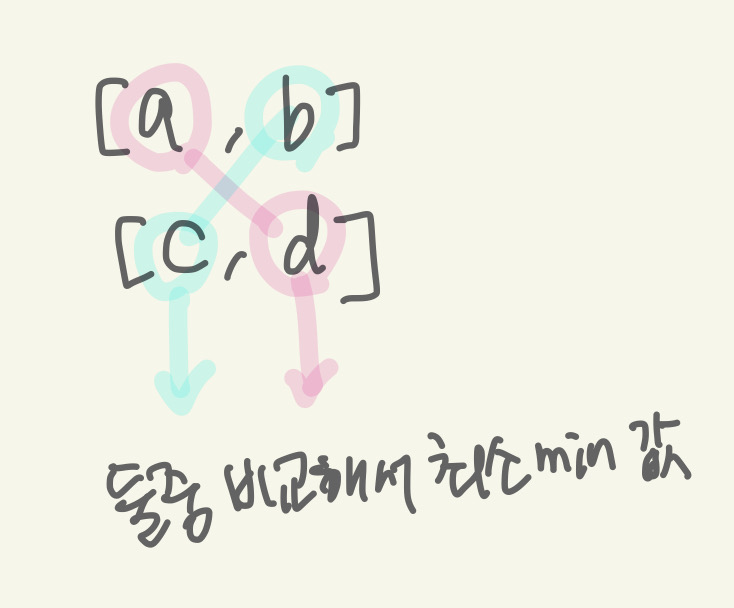 [a, b]
[c, d]
둘중 비교해서 최소 min 값